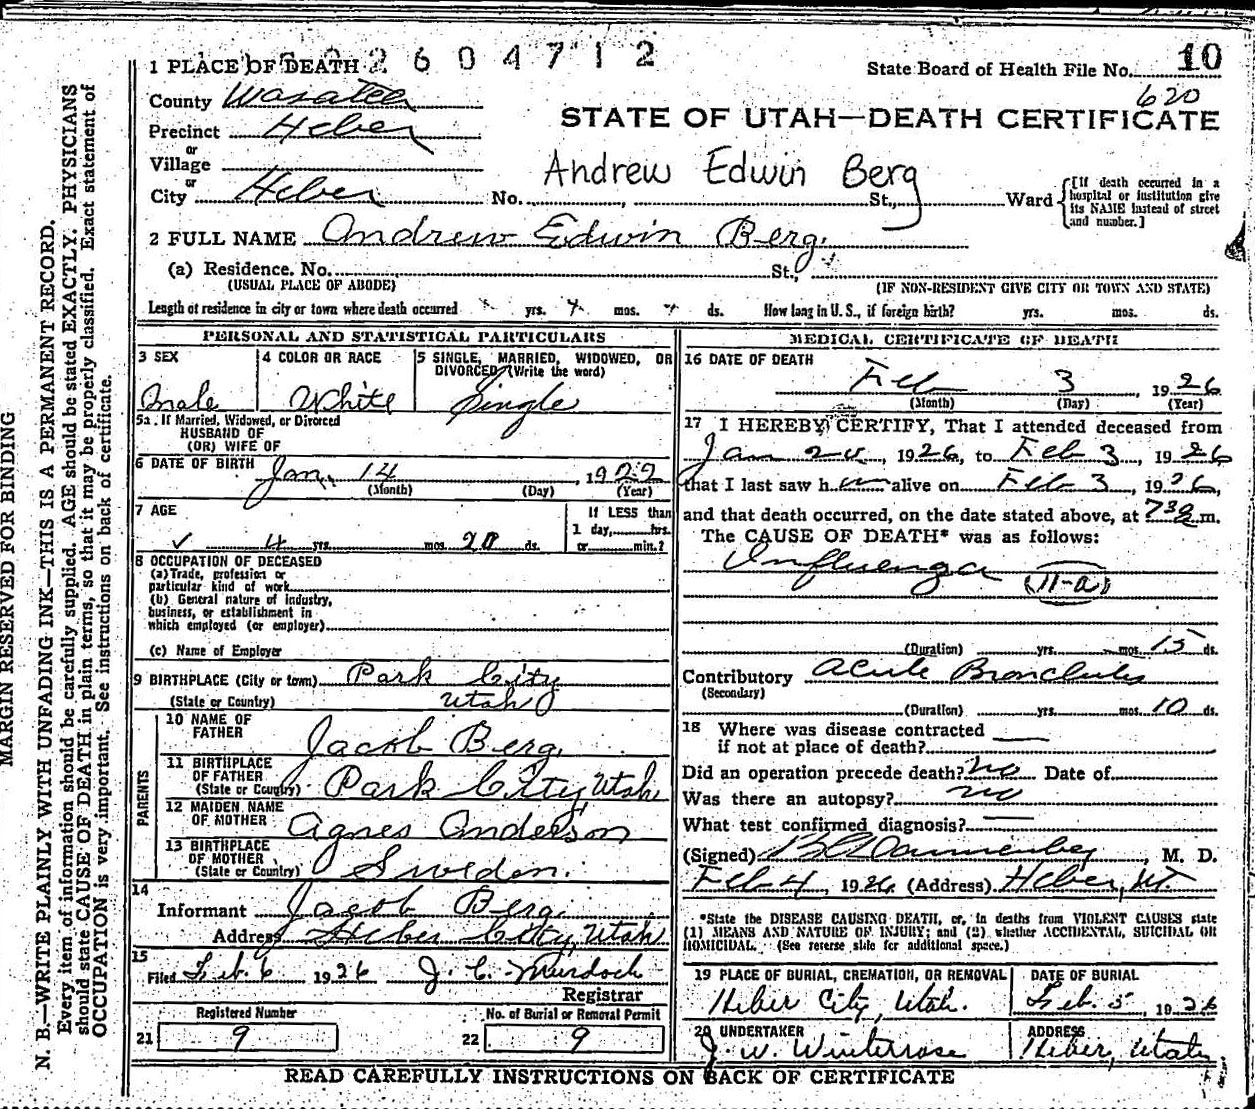 1 PLACE OF DEATH 2 6 0 4 7 1 2
State Board of Health File No. 10
620
County Wasatch
STATE OF UTAH—DEATH CERTIFICATE
Precinct Heber
or
Village
or
City Heber No. , St., Ward
Andrew Edwin Berg
[If death occurred in a hospital or institution give its NAME instead of street and number.]
2 FULL NAME Andrew Edwin Berg.
(a) Residence. No. St.,
(USUAL PLACE OF ABODE) (IF NON-RESIDENT GIVE CITY OR TOWN AND STATE)
Length of residence in city or town where death occurred yrs. mos. ds. How long in U. S., if foreign birth? yrs. mos. ds.
PERSONAL AND STATISTICAL PARTICULARS
3 SEX
Male
4 COLOR OR RACE
White
5 SINGLE, MARRIED, WIDOWED, OR DIVORCED (Write the word)
Single
5a. If Married, Widowed, or Divorced
HUSBAND OF
(OR) WIFE OF
6 DATE OF BIRTH Jan. 14 , 1922
(Month) (Day) (Year)
7 AGE
✓ 4 yrs. mos. 20 ds.
If LESS than
1 day, hrs.
or min.?
8 OCCUPATION OF DECEASED
(a) Trade, profession or
particular kind of work
(b) General nature of industry,
business, or establishment in
which employed (or employer)
(c) Name of Employer
9 BIRTHPLACE (City or town) Park City
(State or Country) Utah
PARENTS
10 NAME OF
FATHER Jacob Berg.
11 BIRTHPLACE
OF FATHER
(State or Country) Park City, Utah
12 MAIDEN NAME
OF MOTHER Agnes Anderson
13 BIRTHPLACE
OF MOTHER
(State or Country) Sweden.
14
Informant Jacob Berg.
Address Heber City, Utah
15
Filed Feb. 6 1926 J. C. Murdock
Registrar
Registered Number
21 9
No. of Burial or Removal Permit
22 9
MEDICAL CERTIFICATE OF DEATH
16 DATE OF DEATH
Feb 3 1926
(Month) (Day) (Year)
17 I HEREBY CERTIFY, That I attended deceased from
Jan , 1926, to Feb 3, 1926
that I last saw h alive on Feb 3, 1926,
and that death occurred, on the date stated above, at m.
The CAUSE OF DEATH* was as follows:
Influenza (11-a)
(Duration) yrs. mos. 15 ds.
Contributory Acute Bronchitis
(Secondary)
(Duration) yrs. mos. 10 ds.
18 Where was disease contracted
if not at place of death?
Did an operation precede death? no Date of
Was there an autopsy? no
What test confirmed diagnosis?
(Signed) , M. D.
Feb 4, 1926 (Address) Heber, Ut.
*State the DISEASE CAUSING DEATH, or, in deaths from VIOLENT CAUSES state
(1) MEANS AND NATURE OF INJURY; and (2) whether ACCIDENTAL, SUICIDAL OR
HOMICIDAL. (See reverse side for additional space.)
19 PLACE OF BURIAL, CREMATION, OR REMOVAL
Heber City, Utah.
DATE OF BURIAL
Feb. 5, 1926
20 UNDERTAKER
J. W. Winterrose
ADDRESS
Heber, Utah
READ CAREFULLY INSTRUCTIONS ON BACK OF CERTIFICATE
MARGIN RESERVED FOR BINDING
N. B.—WRITE PLAINLY WITH UNFADING INK—THIS IS A PERMANENT RECORD.
Every item of information should be carefully supplied. AGE should be stated EXACTLY. PHYSICIANS
should state CAUSE OF DEATH in plain terms, so that it may be properly classified. Exact statement of
OCCUPATION is very important. See instructions on back of certificate.